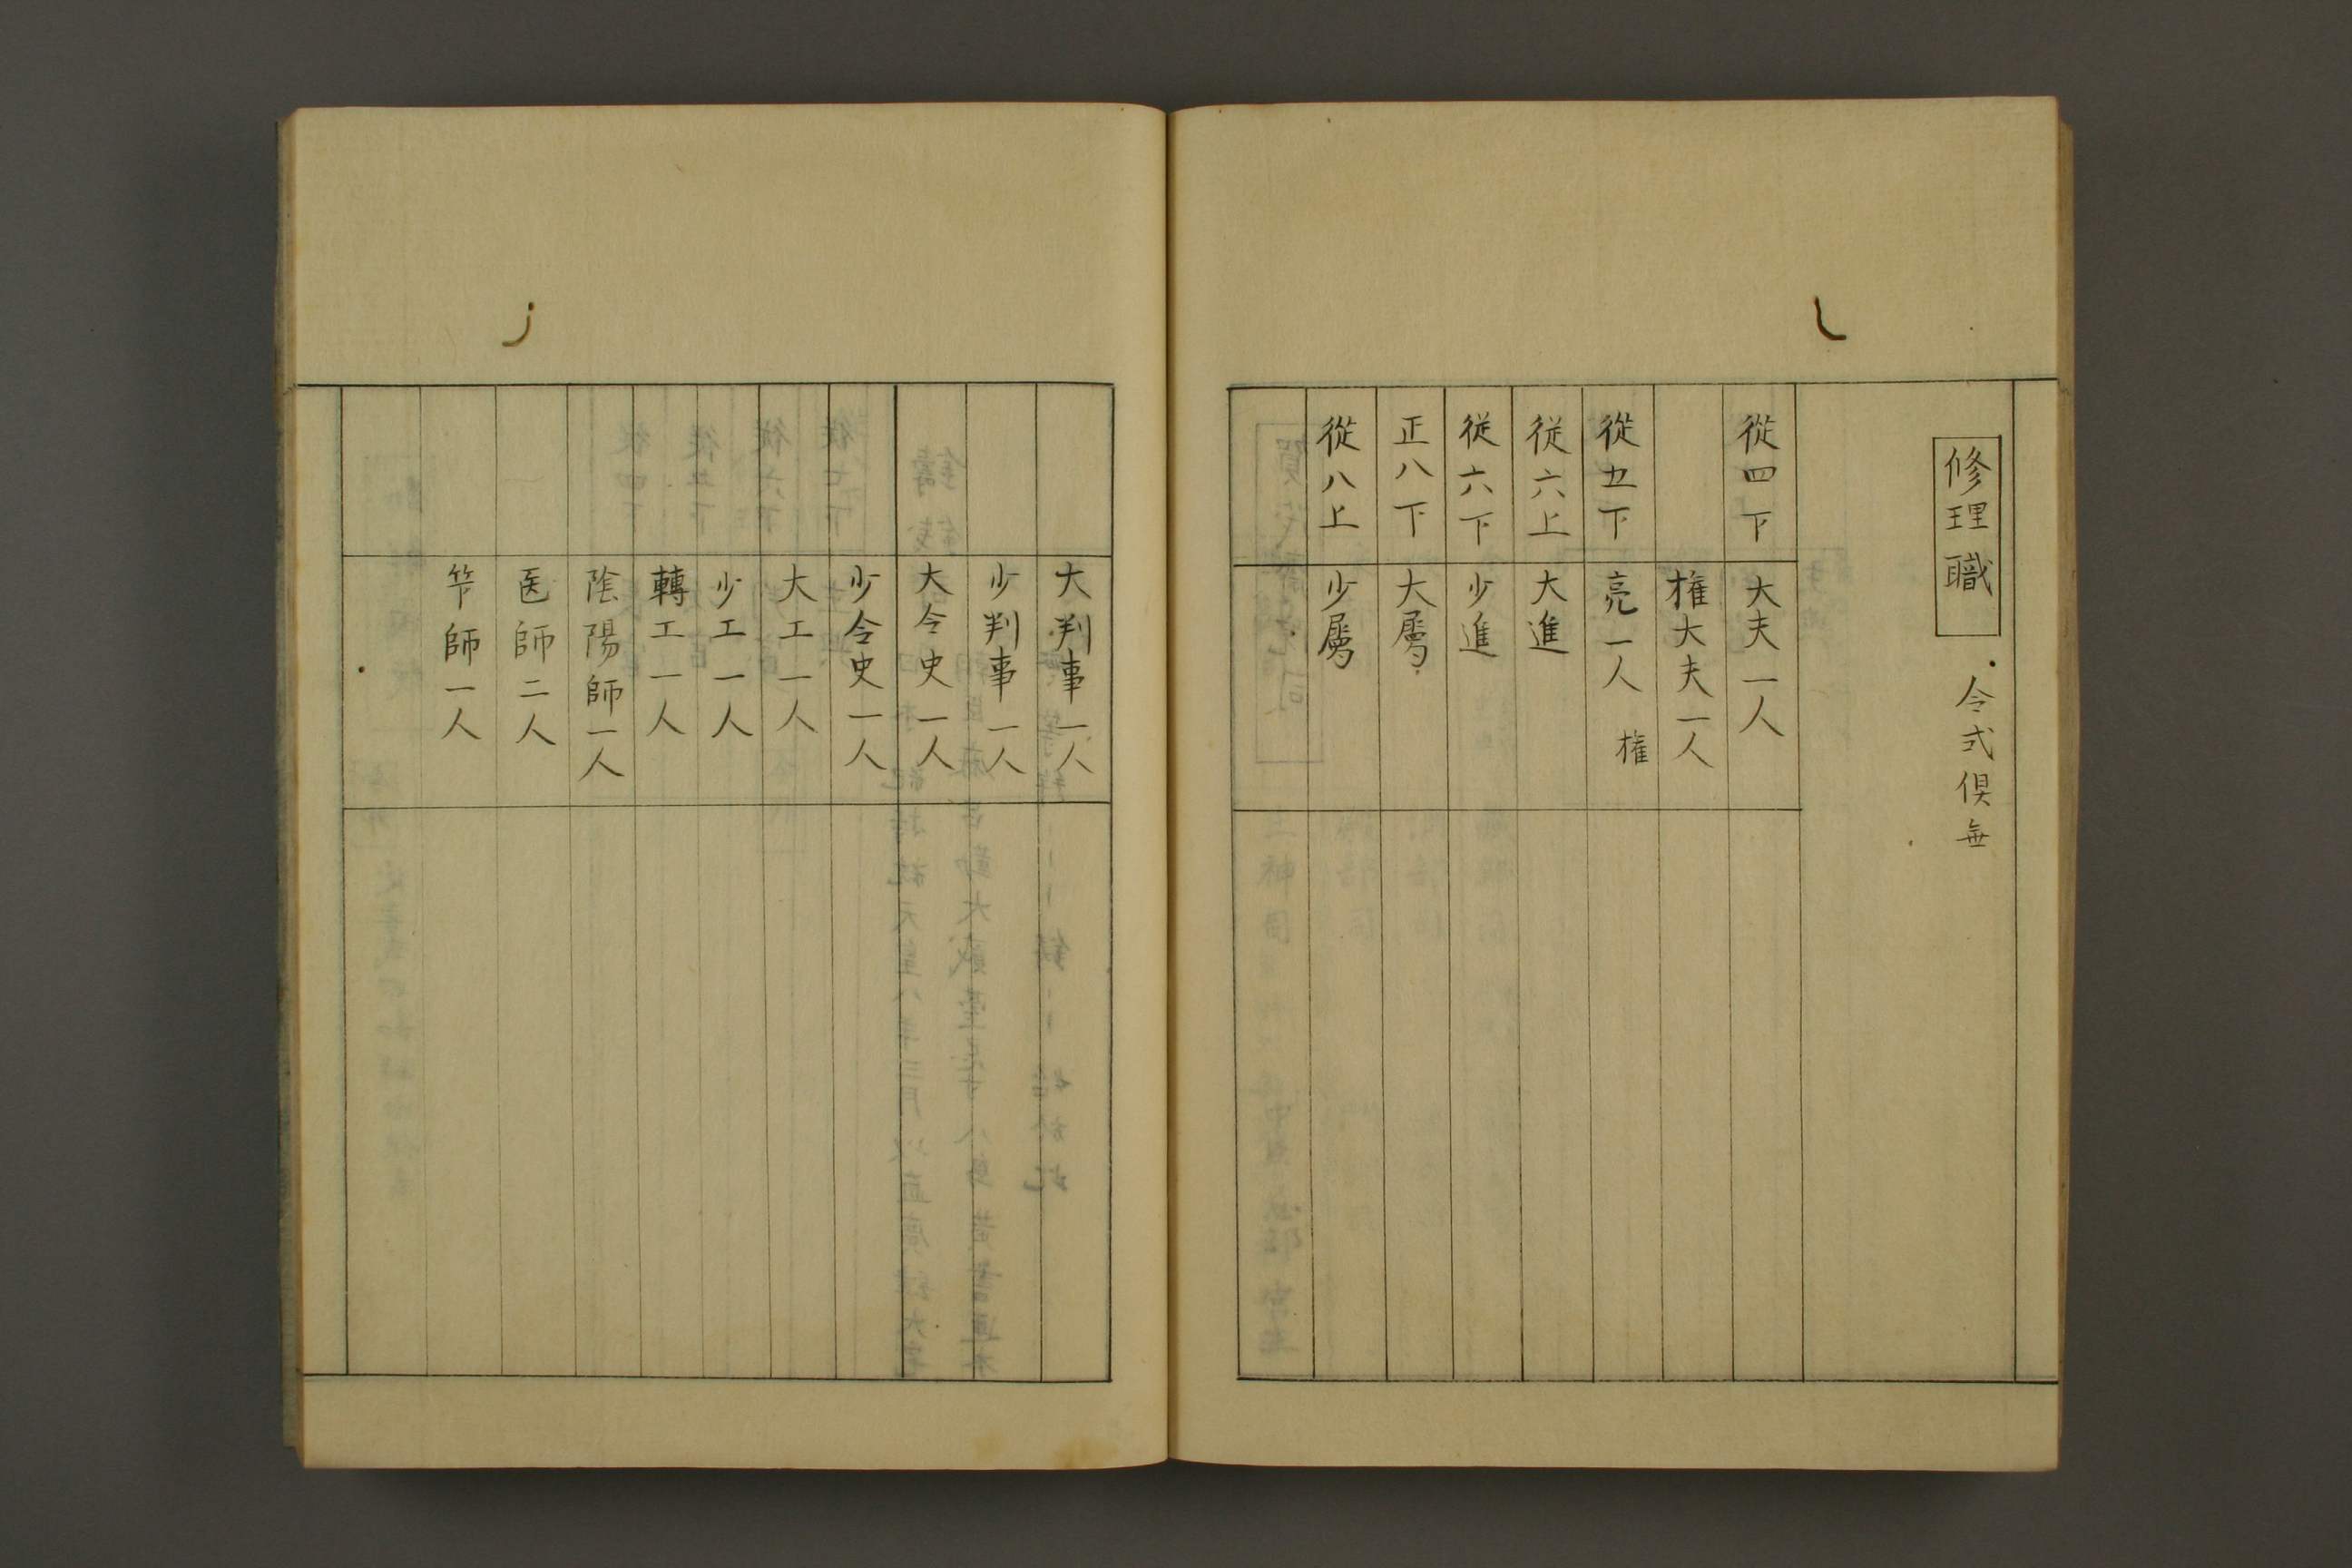 修理職
令式倶無
從四下 大夫一人
権大夫一人
從五下 亮一人 権
従六上 大進
従六下 少進
正八下 大属
從八上 少属
大判事一人
少判事一人
大令史一人
少令史一人
大工一人
少工一人
轉工一人
陰陽師一人
医師二人
竿師一人